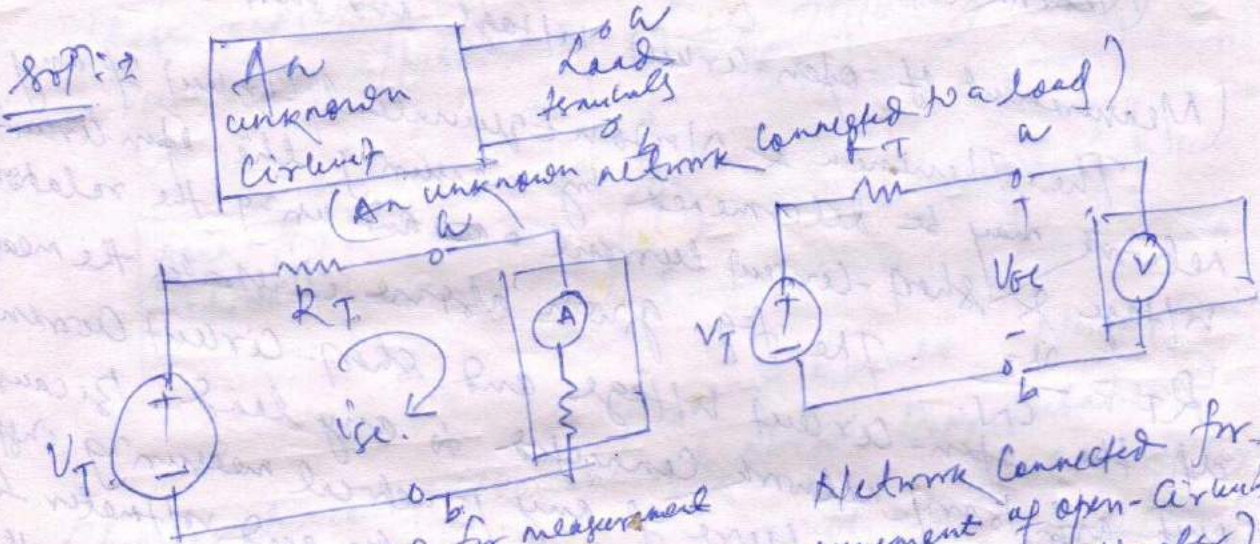 Solⁿ: 2
An
unknown
Circuit
a
Load
terminals
b
(An unknown network connected to a load)
a
RT
isc.
VT.
A
b
for measurement
RT
a
+
Voc
-
VT
V
b
Network Connected for
of open-Circuit